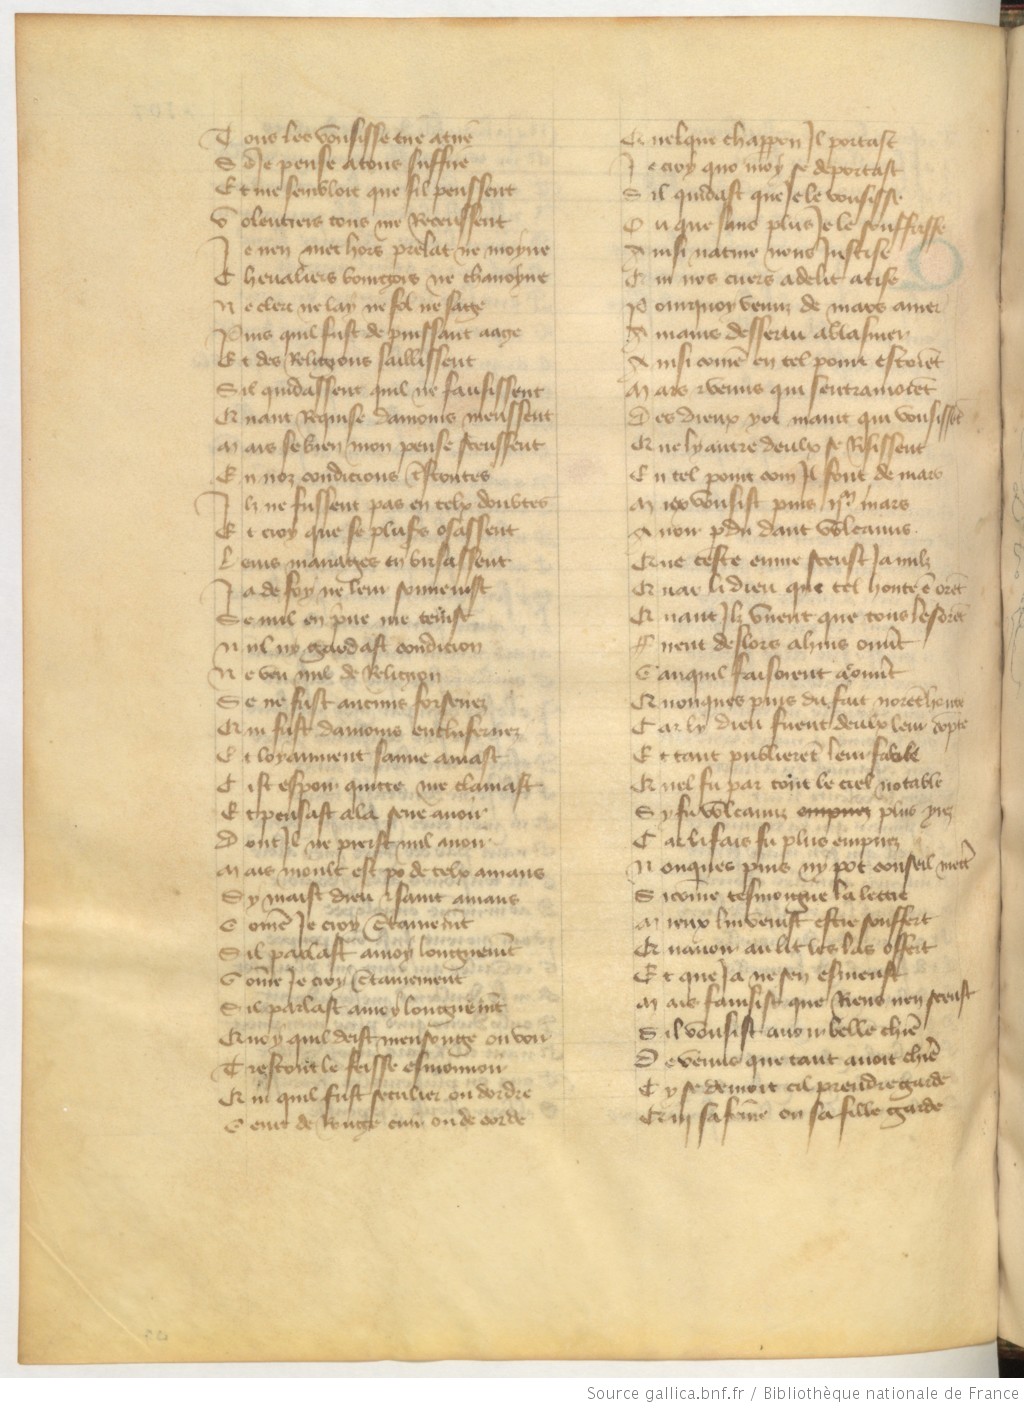 T ous les vousisse tue a tue
S Je pense a tous suffire
Et me sembloit que sil peussent
V olentiers tous me Receussent
J e nen met hors prelat ne moyne
C hevaliers bourgois ne chanoyne
N e clerc ne lay ne fol ne sage
P uis quil fust de puissant aage
E t des Religions saillissent
S il quidassent quil ne fausissent
Q uant Requise damours meussent
M ais se bien mon pense sceussent
E n noz condicions
J lz ne fussent pas en telx doubtes
E t croy que se plusrs osassent
L eurs mariages en
J a de foy ne leur souvenist
Se nul en prive me tenist
N ul ny gardast condicion
N e veu nul de Religion
S e ne fust aucuns forsenez
Q ui fust damours
E t loyaument samie amast
C ist espoir quitte me clamast
E t pensast a la seue avoir
D ont Il ne prist nul avoir
M ais moult est po de telx amans
S y maist dieu et saint amans
C ome Je croy
S il parlast a moy longuemt
C ome Je croy
S il parlast a moy longuemt
Q uey quil deist mensonge ou voir
T restout le feisse esmouvoir
Q ui quil fust seculier ou dordre
C eint de Rouge cuir ou de corde
Q uelque chappon Jl portast
J e croy quo moy se deportast
S il quidast que Je le vousisse
O u que sans plus Je le souffrisse
A insi nature nous Justise
Q ui nos cuers a delit atise
P ourquoy venuz de mars amer
A mains desservu a blasmer
A insi come en tel point estoient
M ars et venus qui sentramoiet
D es dieux y ot maint qui vousisset
Q ue ly autre deulx se Risissent
E n tel point com Jl font de mars
M iex vousist puis mars
A voir pdu dant Vulcanus
Q ue ceste euvre sceust Ja nulz
Q uar li dieu que tel honte
Q uant Jlz virent que tous
F irent deslors a huis
C anquil faisoient
Q nonques puis du fait norent honte
C ar ly dieu firent deulx leur
E t tant publierent leur fable
Q uel fu par tout le ciel notable
S y fu Vulcanuz empirez plus yrez
C ar li fais fu plus empirez
N onques puis ny pot conseil mectre
S icome tesmoigne la lectre
M ieux luy venist estre souffert
Q uavoir au lit les las offert
E t que Ja ne sen esmeust
M ais fainsist que Riens nen sceust
S il vousist avoir belle chiere
D e venus que tant avoit chiere
C y se devroit cil prendre garde
Q ui sa feme ou sa fille garde
Source gallica.bnf.fr / Bibliothèque nationale de France